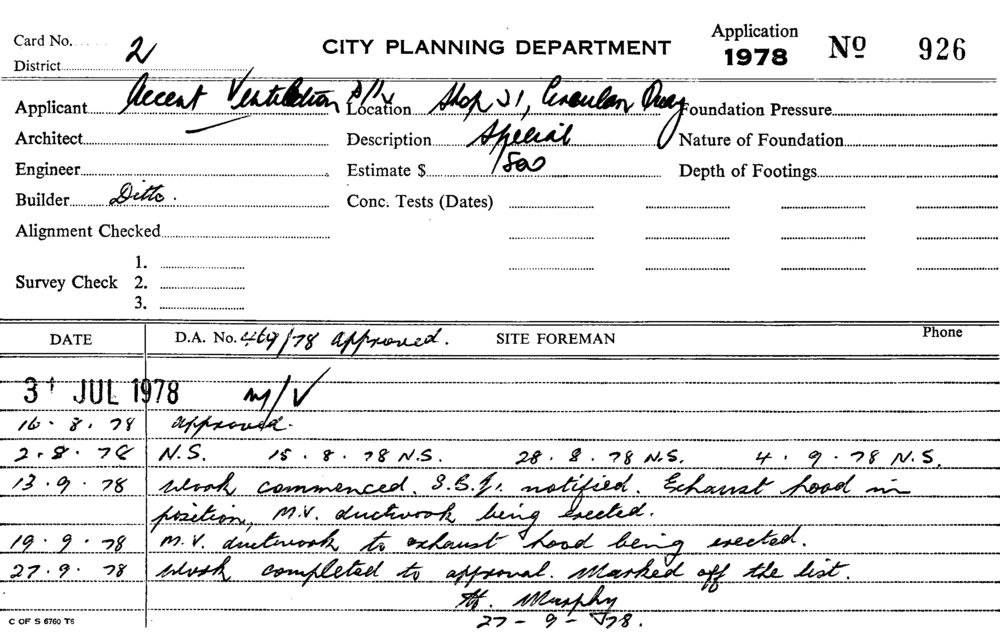 Card No. 2 CITY PLANNING DEPARTMENT Application 1978 Nº 926
District
Applicant Accent Ventilation P/L Location Shop J1, Circular Quay Foundation Pressure
Architect Description Special Nature of Foundation
Engineer Estimate $ 1500 Depth of Footings
Builder Ditto. Conc. Tests (Dates)
Alignment Checked
1.
Survey Check 2.
3.
DATE D.A. No. 469/78 Approved. SITE FOREMAN Phone
31 JUL 1978 M/V
16.8.78 approved.
2.8.78 N.S. 15.8.78 N.S. 28.8.78 N.S. 4.9.78 N.S.
13.9.78 Work commenced. notified. Exhaust hood in
position, M.V. ductwork being erected.
19.9.78 M.V. ductwork to exhaust hood being erected.
27.9.78 Work completed to approval. Marked off the list.
Murphy
27-9-78.
C OF S 6760 T6